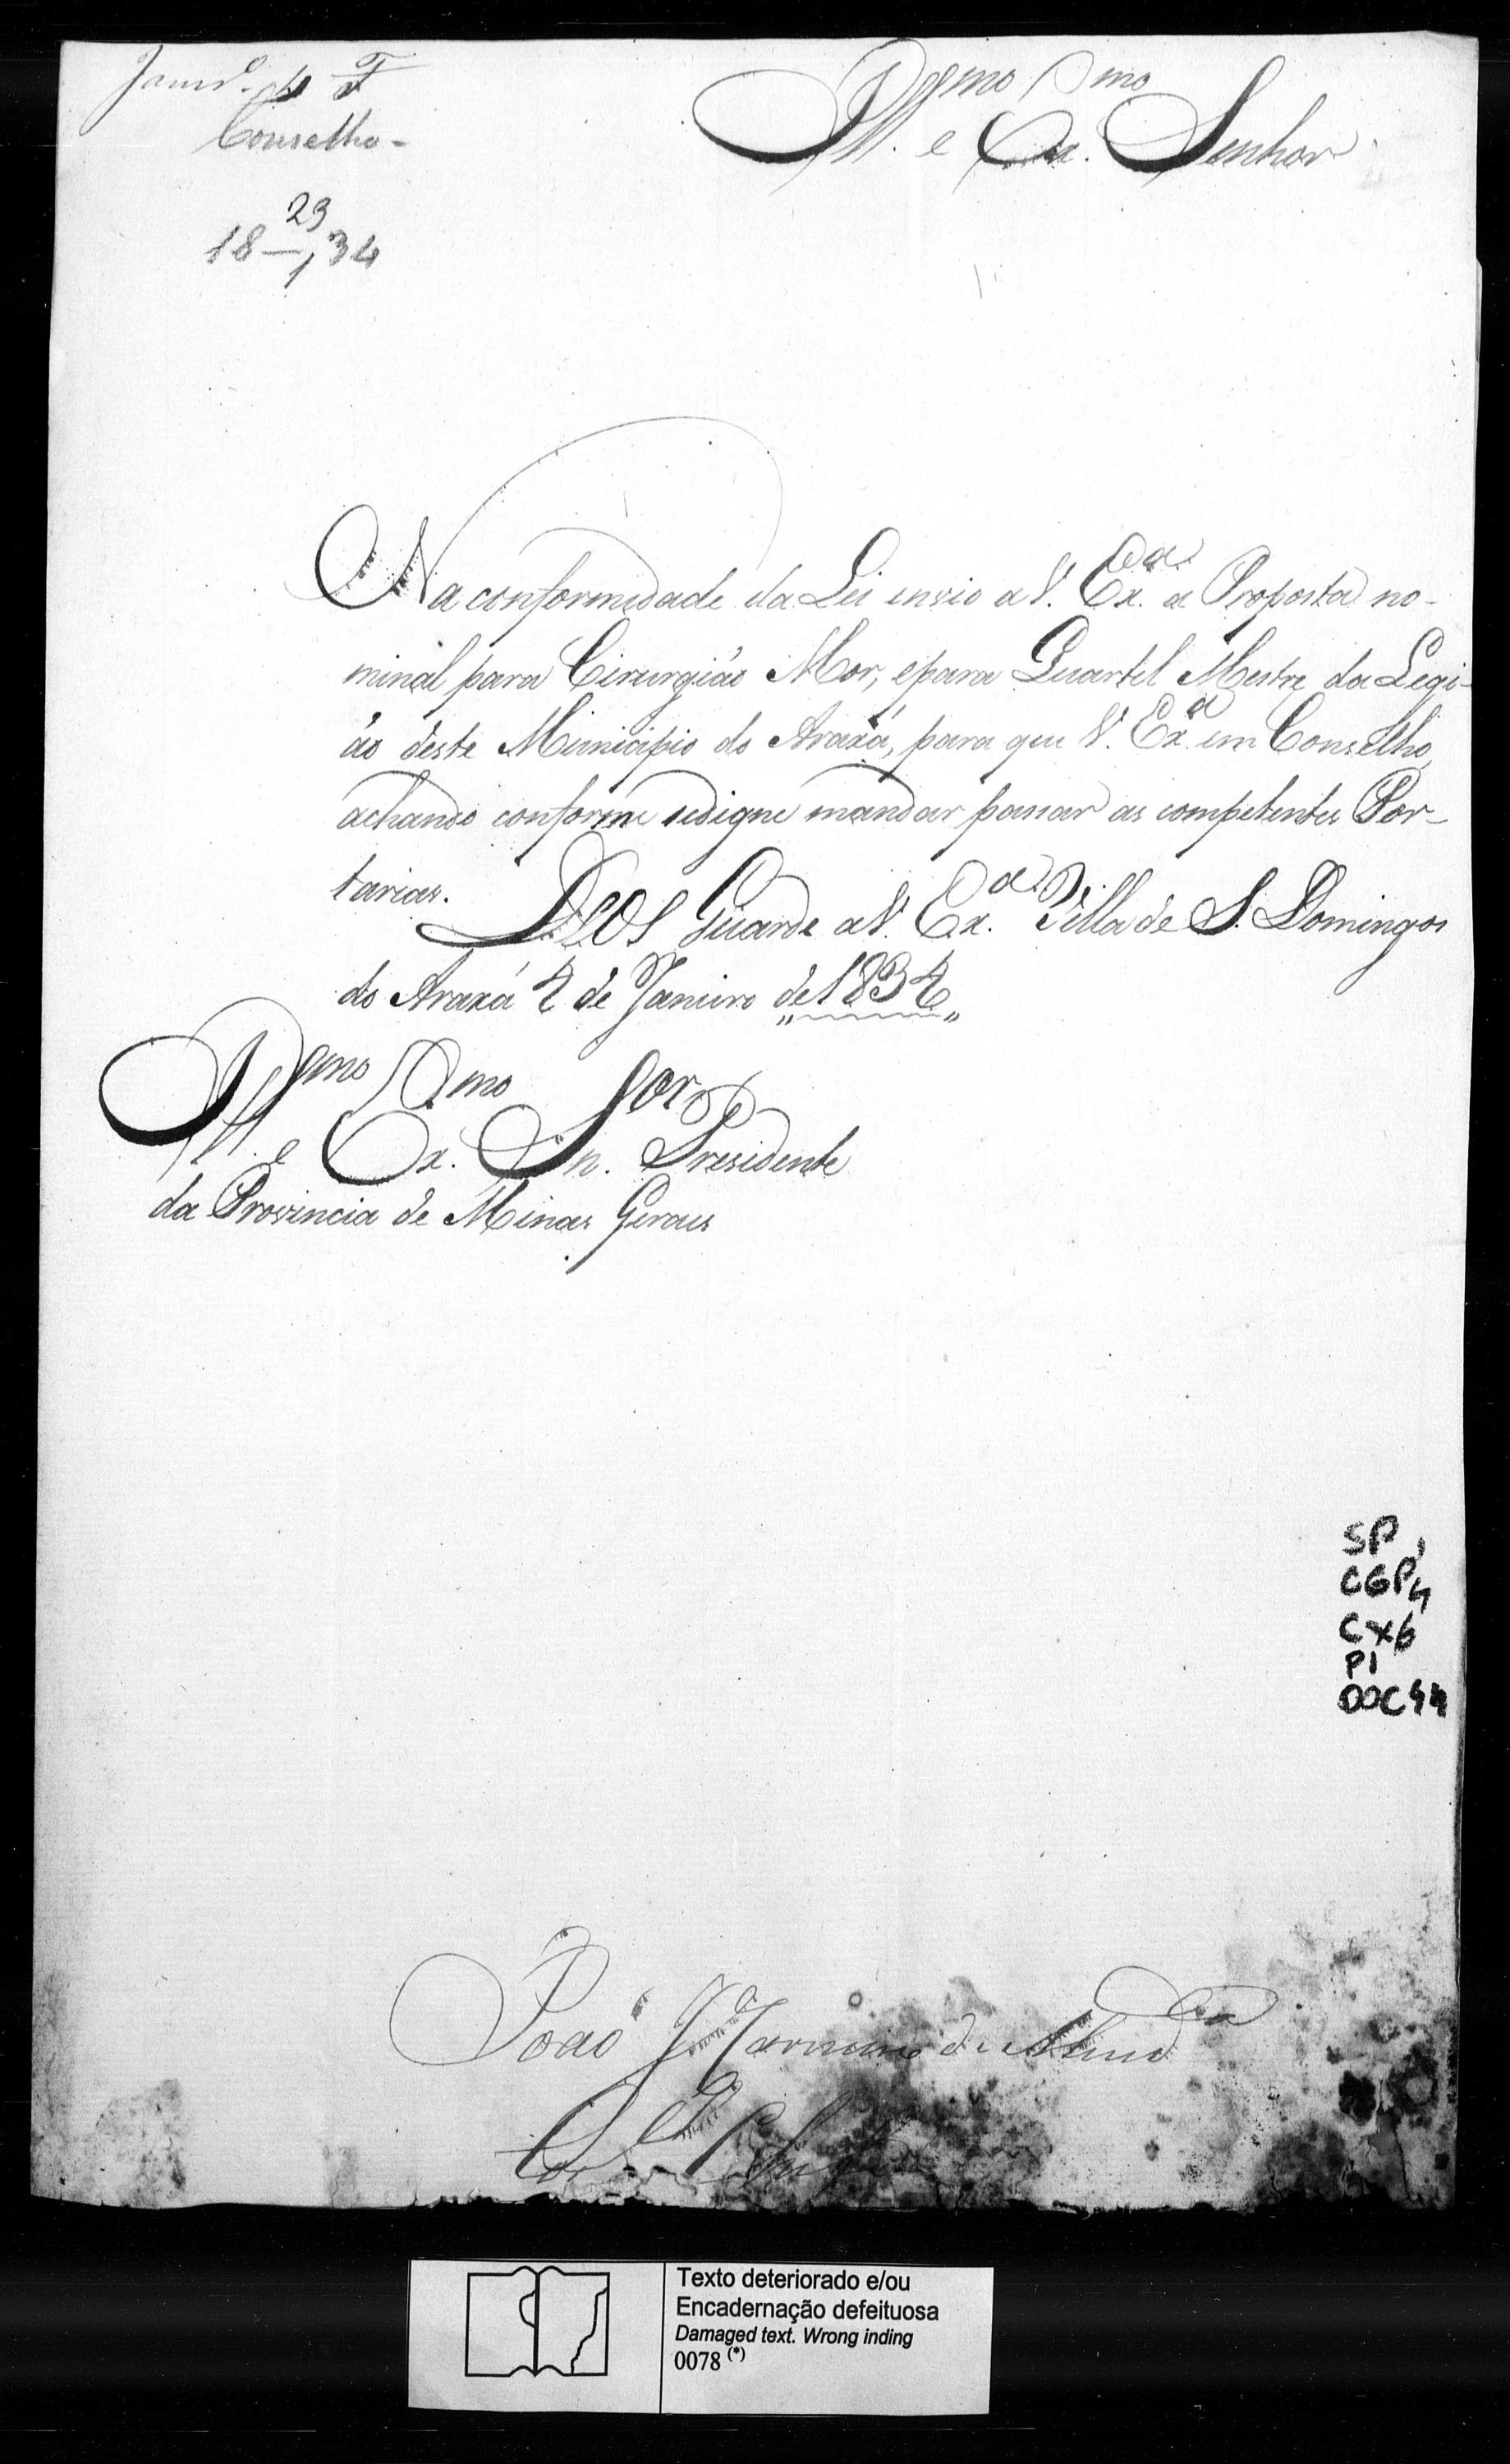 Conselho -
23
18 - 1, 34
Illmo. e Exmo. Senhor
Na conformidade da Lei envio a V. Exa. a Proposta no-
minal para Cirurgião Mor, epara Quartel Mestre da Legi-
ão deste Municipio do Araxá, para que V. Exa. em Conselho,
achando conforme sedigne mandar passar as competentes Por-
tarias.
DEOS Guarde a V. Exa. Villa de S. Domingos
do Araxá 4 de Janeiro de 1834
Illmo. e Exmo. Snor. Presidente
da Provincia de Minas Geraes
SP
CGP4
CX6
P1
DOC44
João
de
Texto deteriorado e/ou
Encadernação defeituosa
Damaged text. Wrong inding
0078 (*)